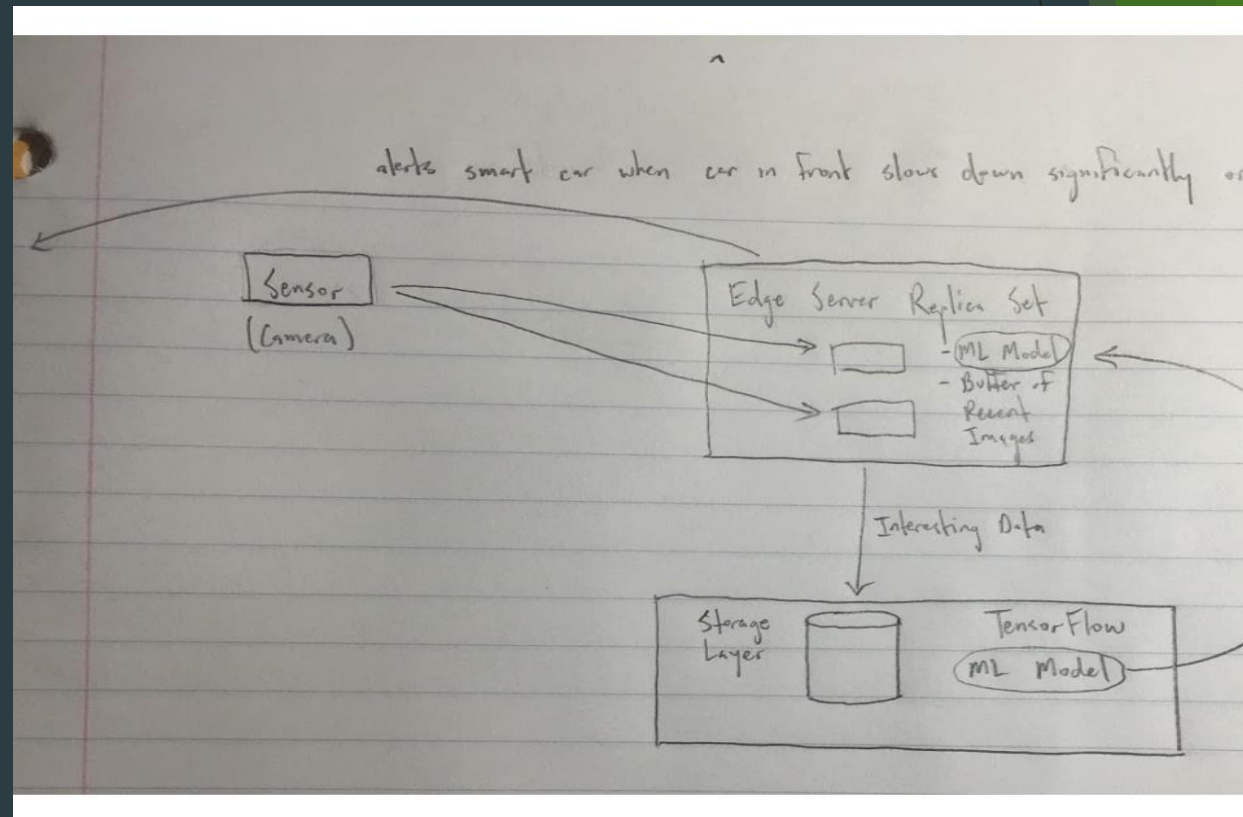 alerts smart car when car in front slows down significantly or
Sensor
(Camera)
Edge Server Replica Set
- ML Model
- Buffer of
Recent
Images
Interesting Data
Storage
Layer
TensorFlow
ML Model